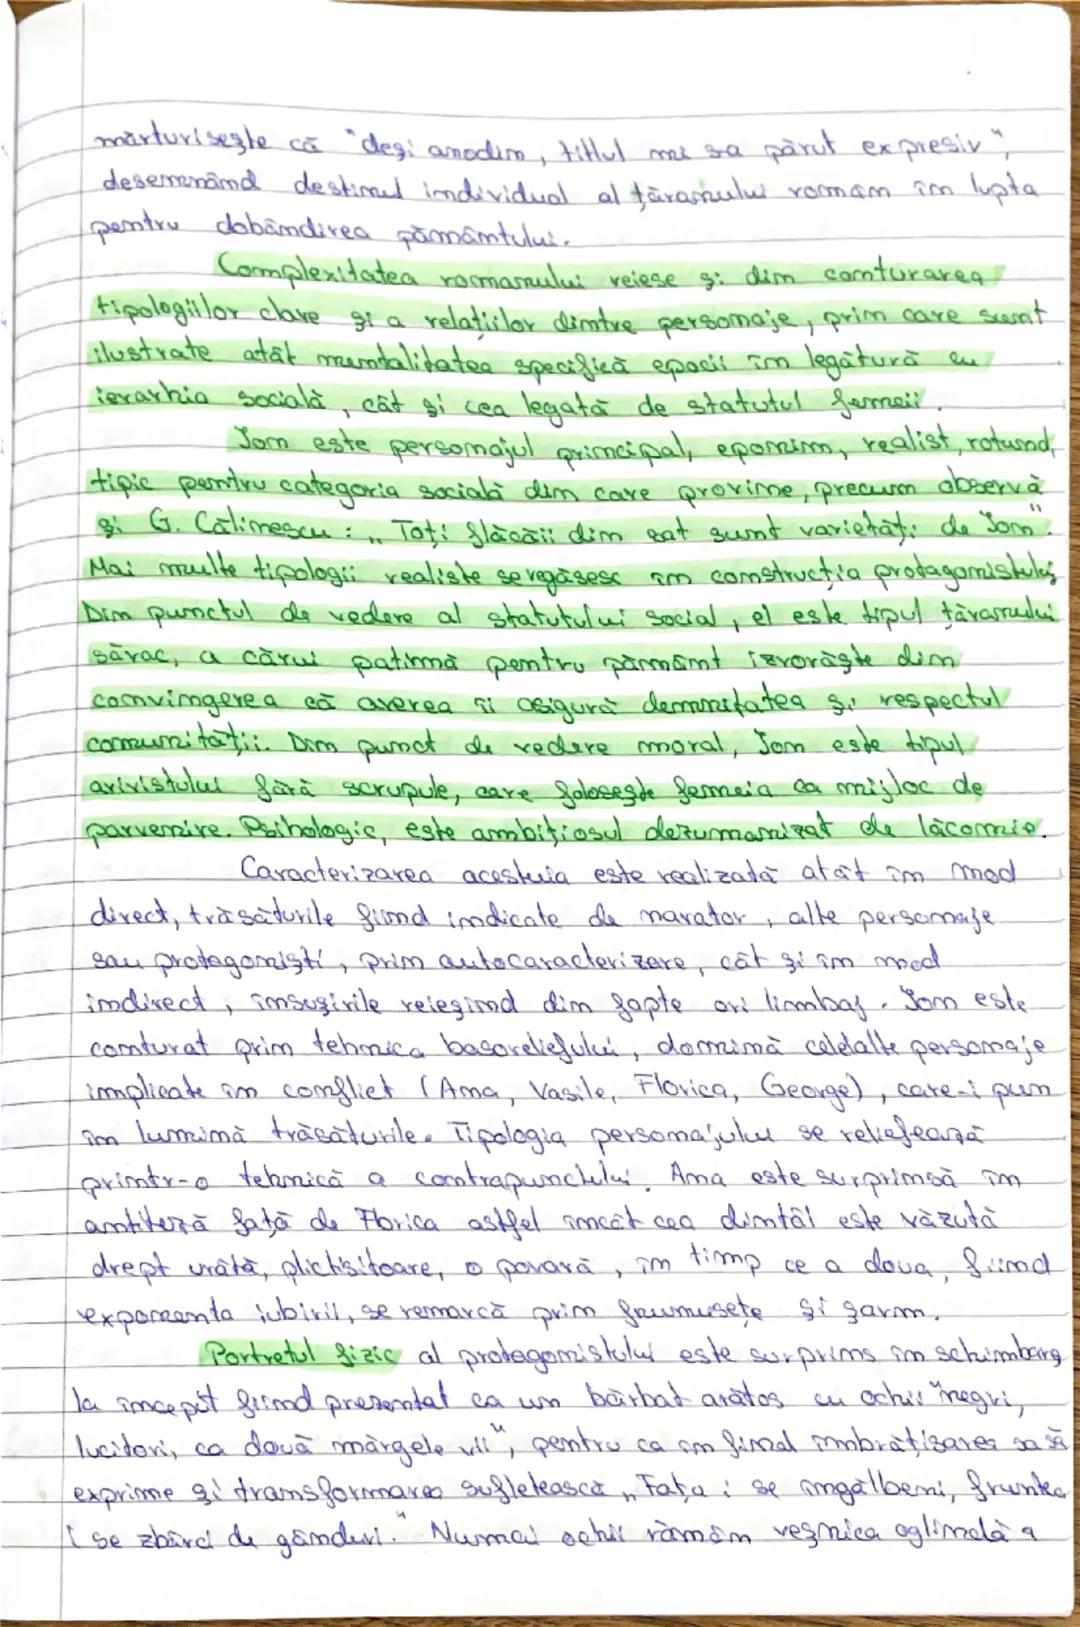 mărturisește că "deși anodin, titlul mi sa părut expresiv",
desemnând destinul individual al țăranului român în lupta
pentru dobândirea pământului.
Complexitatea romanului reiese și din conturarea
tipologiilor clave și a relațiilor dintre personaje, prin care sunt
ilustrate atât mentalitatea specifică epocii în legătură cu
ierarhia socială, cât și cea legată de statutul femeii.
Ion este personajul principal, eponim, realist, rotund,
tipic pentru categoria socială din care provine, precum observă
și G. Călinescu: „Toți flăcăii din sat sunt varietăți de Ion".
Mai multe tipologii realiste se regăsesc în construcția protagonistului
Din punctul de vedere al statutului social, el este tipul țăranului
sărac, a cărui patimă pentru pământ izvorăște din
convingerea că averea îi asigură demnitatea și respectul
comunității. Din punct de vedere moral, Ion este tipul
arivistului fără scrupule, care folosește femeia ca mijloc de
parvenire. Psihologic, este ambițiosul dezumanizat de lăcomie.
Caracterizarea acestuia este realizată atât în mod
direct, trăsăturile fiind indicate de narator, alte personaje
sau protagoniști, prin autocaracterizare, cât și în mod
indirect, însușirile reieșind din fapte ori limbaj. Ion este
conturat prin tehnica basoreliefului, domină celelalte personaje
implicate în conflict (Ana, Vasile, Florica, George), care-i pun
în lumină trăsăturile. Tipologia personajului se reliefează
printr-o tehnică a contrapunctului. Ana este surprinsă în
antiteză față de Florica astfel încât cea dintâi este văzută
drept urâtă, plictisitoare, o povară, în timp ce a doua, fiind
exponenta iubirii, se remarcă prin frumusețe și șarm.
Portretul fizic al protagonistului este surprins în schimbare
la început fiind prezentat ca un bărbat arătos cu ochii "negri,
lucitori, ca două mărgele vii", pentru ca în final îmbrățișarea sa să
exprime și transformarea sufletească „Fața i se îngălbeni, fruntea
i se zbârci de gânduri." Numai ochii rămân veșnica oglindă a